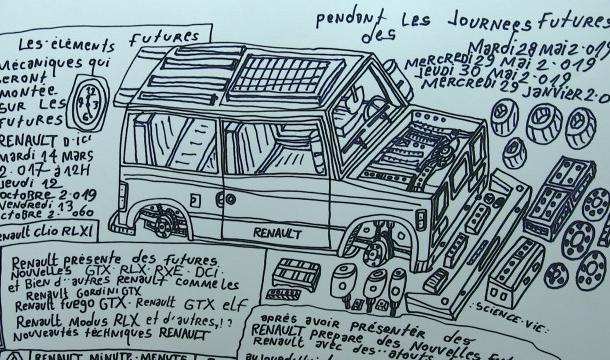 Les éléments futures
Mécaniques qui
seront
montée
SUR LES
futures
RENAULT D'ICI
Mardi 14 MARS
2.017 à 12H
Jeudi 12
octobre 2.019
Vendredi 13
octobre 2.060
Renault Clio RLX1
12
9 3
6
pendant LES JOURNÉES FUTURES
des
Mardi 28 Mai 2.019
Mercredi 29 Mai 2.019
Jeudi 30 Mai 2.019
Mercredi 29 JANVIER 2.0
RENAULT
Renault présente des futures
Nouvelles GTX·RLX·RXE·DCi·
et Bien d'autres Renault comme les
Renault Gordini GTX
Renault fuego GTX·Renault GTX elf
Renault Modus RLX et d'autres,!?
Nouveautés techniques RENAULT
RENAULT MINUTE·MINUTE
:SCIENCE·VIE:
après avoir présentér des
RENAULT prepare des Nouvelles Fu
Renault avec des